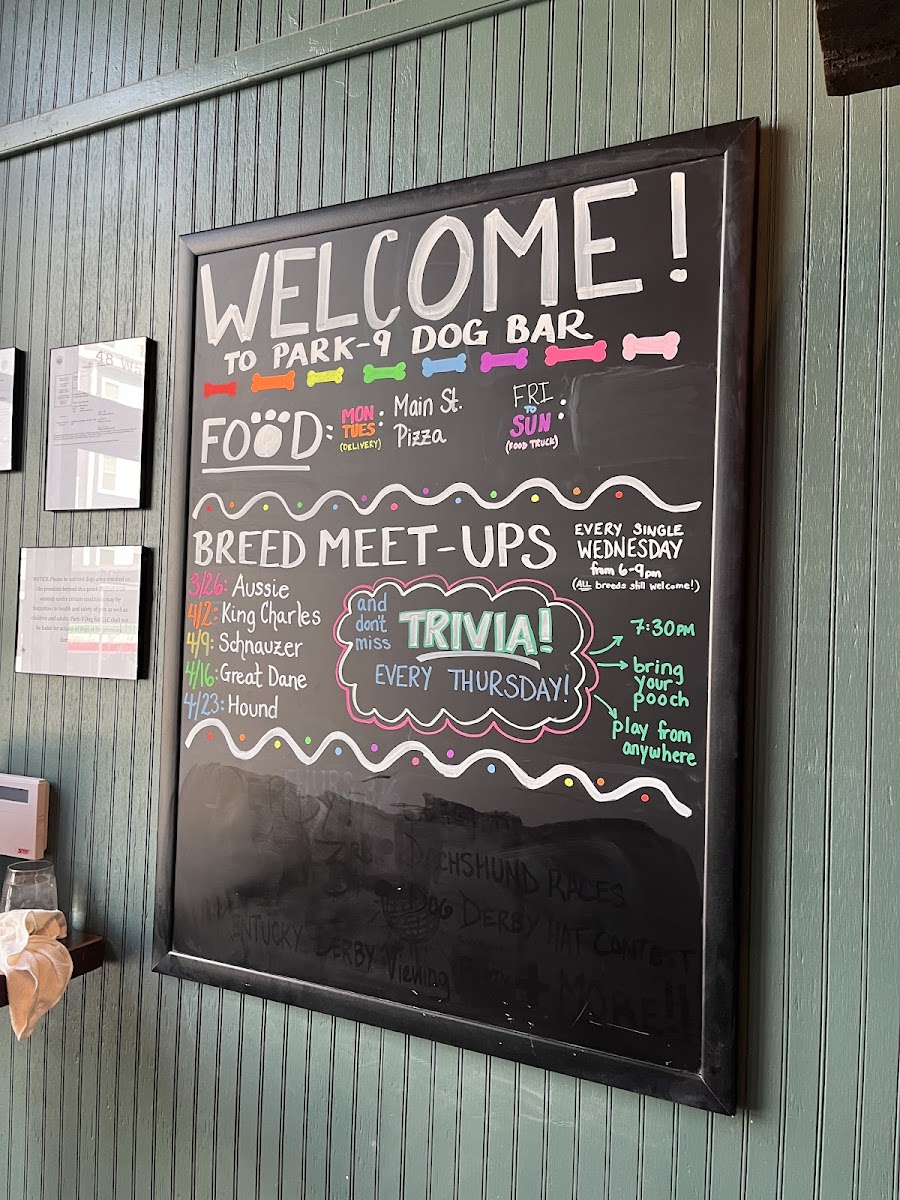 WELCOME!
TO PARK-9 DOG BAR
FOOD:
MON
TUES:
(DELIVERY)
Main St.
Pizza
FRI
TO
SUN:
(FOOD TRUCK)
BREED MEET-UPS
EVERY SINGLE
WEDNESDAY
from 6-9pm
(ALL breeds still welcome!)
3/26: Aussie
4/2: King Charles
4/9: Schnauzer
4/16: Great Dane
4/23: Hound
and
don't
miss
TRIVIA!
EVERY THURSDAY!
7:30PM
bring
your
pooch
play from
anywhere
DACHSHUND RACES
DOG DERBY HAT CONTEST
KENTUCKY DERBY Viewing
+ MORE!!